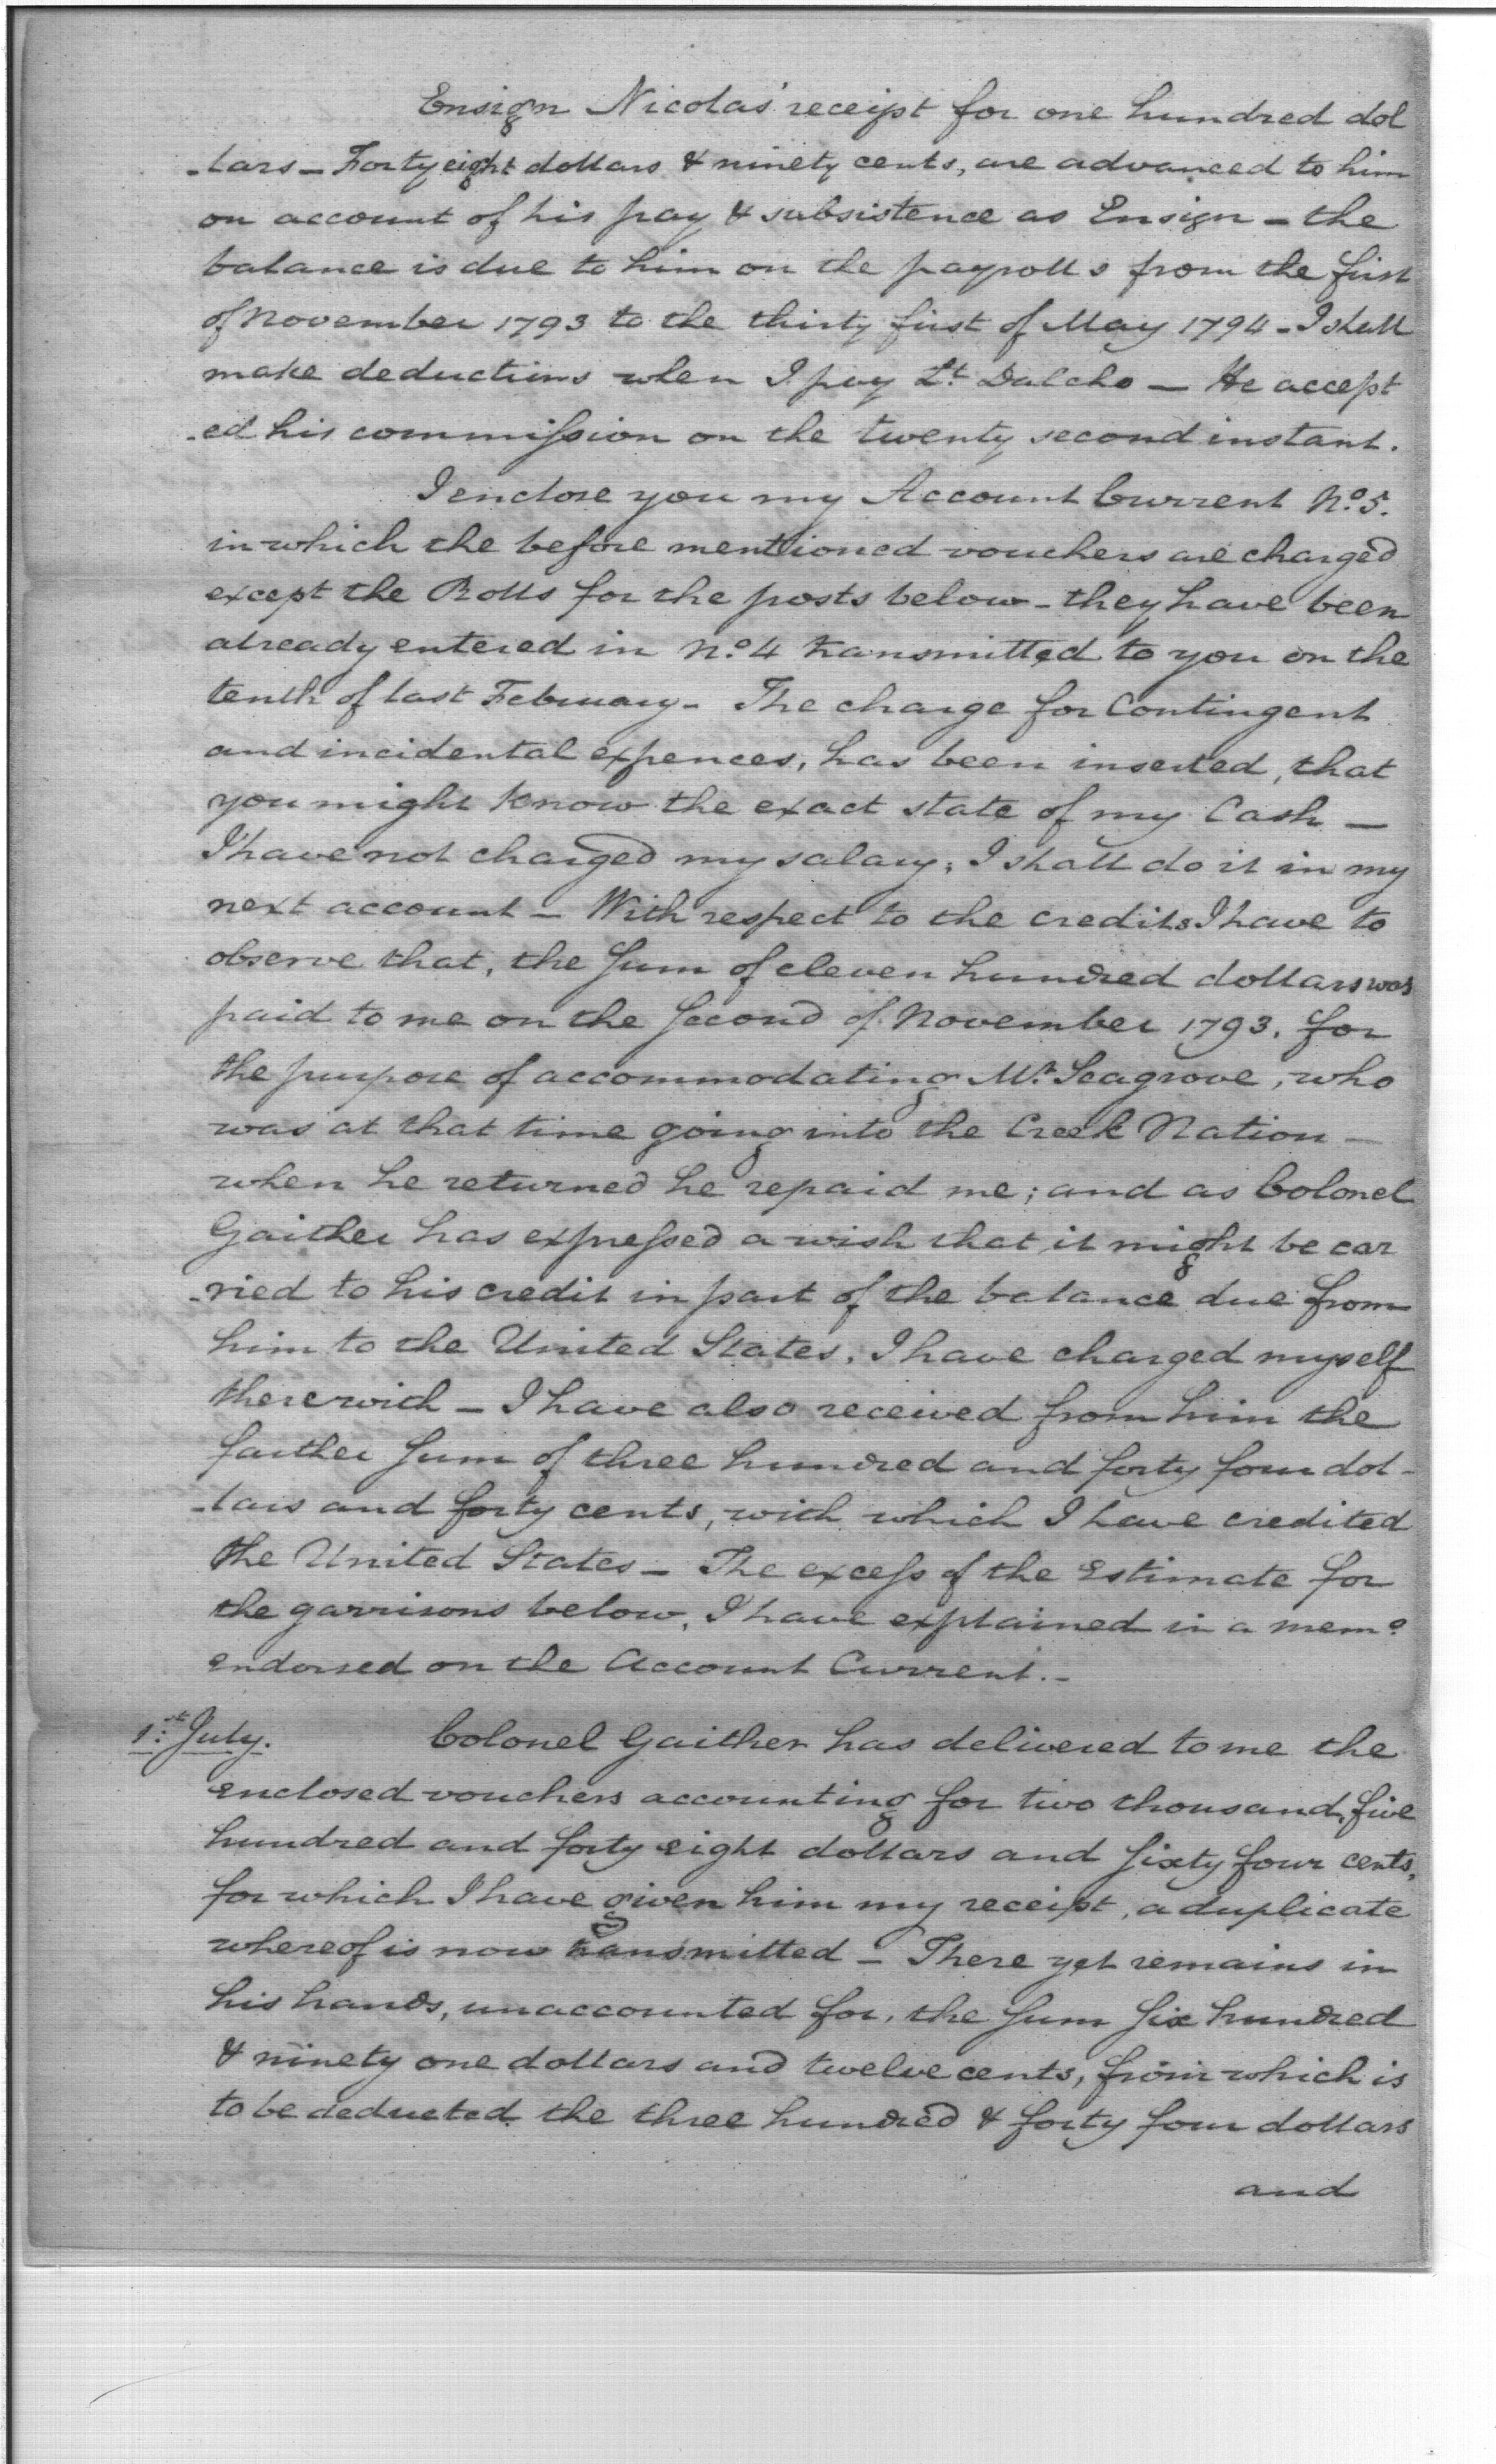 Ensign Nicolas' receipt for one hundred dol
-lars - Forty eight dollars & ninety cents, are advanced to him
on account of his pay & subsistence as Ensign - the
balance is due to him on the payrolls from the first
of November 1793 to the thirty first of May 1794 - I shall
make deductions when I pay Lt. Dalcho - He accept
-ed his commission on the twenty second instant.
I enclose you my Account Current No. 5.
in which the before mentioned vouchers are charged
except the Rolls for the posts below - they have been
already entered in No. 4 transmitted to you on the
tenth of last February - The charge for Contingent
and incidental expences, has been inserted, that
you might know the exact state of my Cash -
I have not charged my salary; I shall do it in my
next account - With respect to the credits I have to
observe that, the Sum of eleven hundred dollars was
paid to me on the Second of November 1793, for
the purpose of accommodating Mr. Seagrove, who
was at that time going into the Creek Nation -
when he returned he repaid me; and as Colonel
Gaither has expressed a wish that it might be car
-ried to his credit in part of the balance due from
him to the United States, I have charged myself
therewith - I have also received from him the
farther Sum of three hundred and forty four dol-
-lars and forty cents, with which I have credited
the United States - The excess of the Estimate for
the garrisons below, I have explained in a memo.
endorsed on the Account Current. -
1st. July. Colonel Gaither has delivered to me the
enclosed vouchers accounting for two thousand, five
hundred and forty eight dollars and Sixty four cents,
for which I have given him my receipt, a duplicate
whereof is now transmitted - There yet remains in
his hands, unaccounted for, the Sum Six hundred
& ninety one dollars and twelve cents, from which is
to be deducted the three hundred & forty four dollars
and